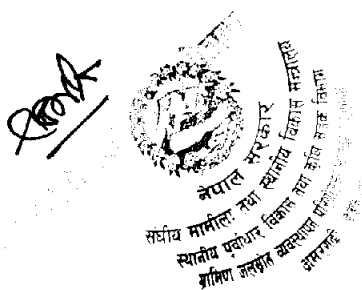 नेपाल सरकार
संघीय मामिला तथा स्थानीय विकास मन्त्रालय
स्थानीय पूर्वाधार विकास तथा कृषि सडक विभाग
ग्रामिण जलस्रोत व्यवस्थापन